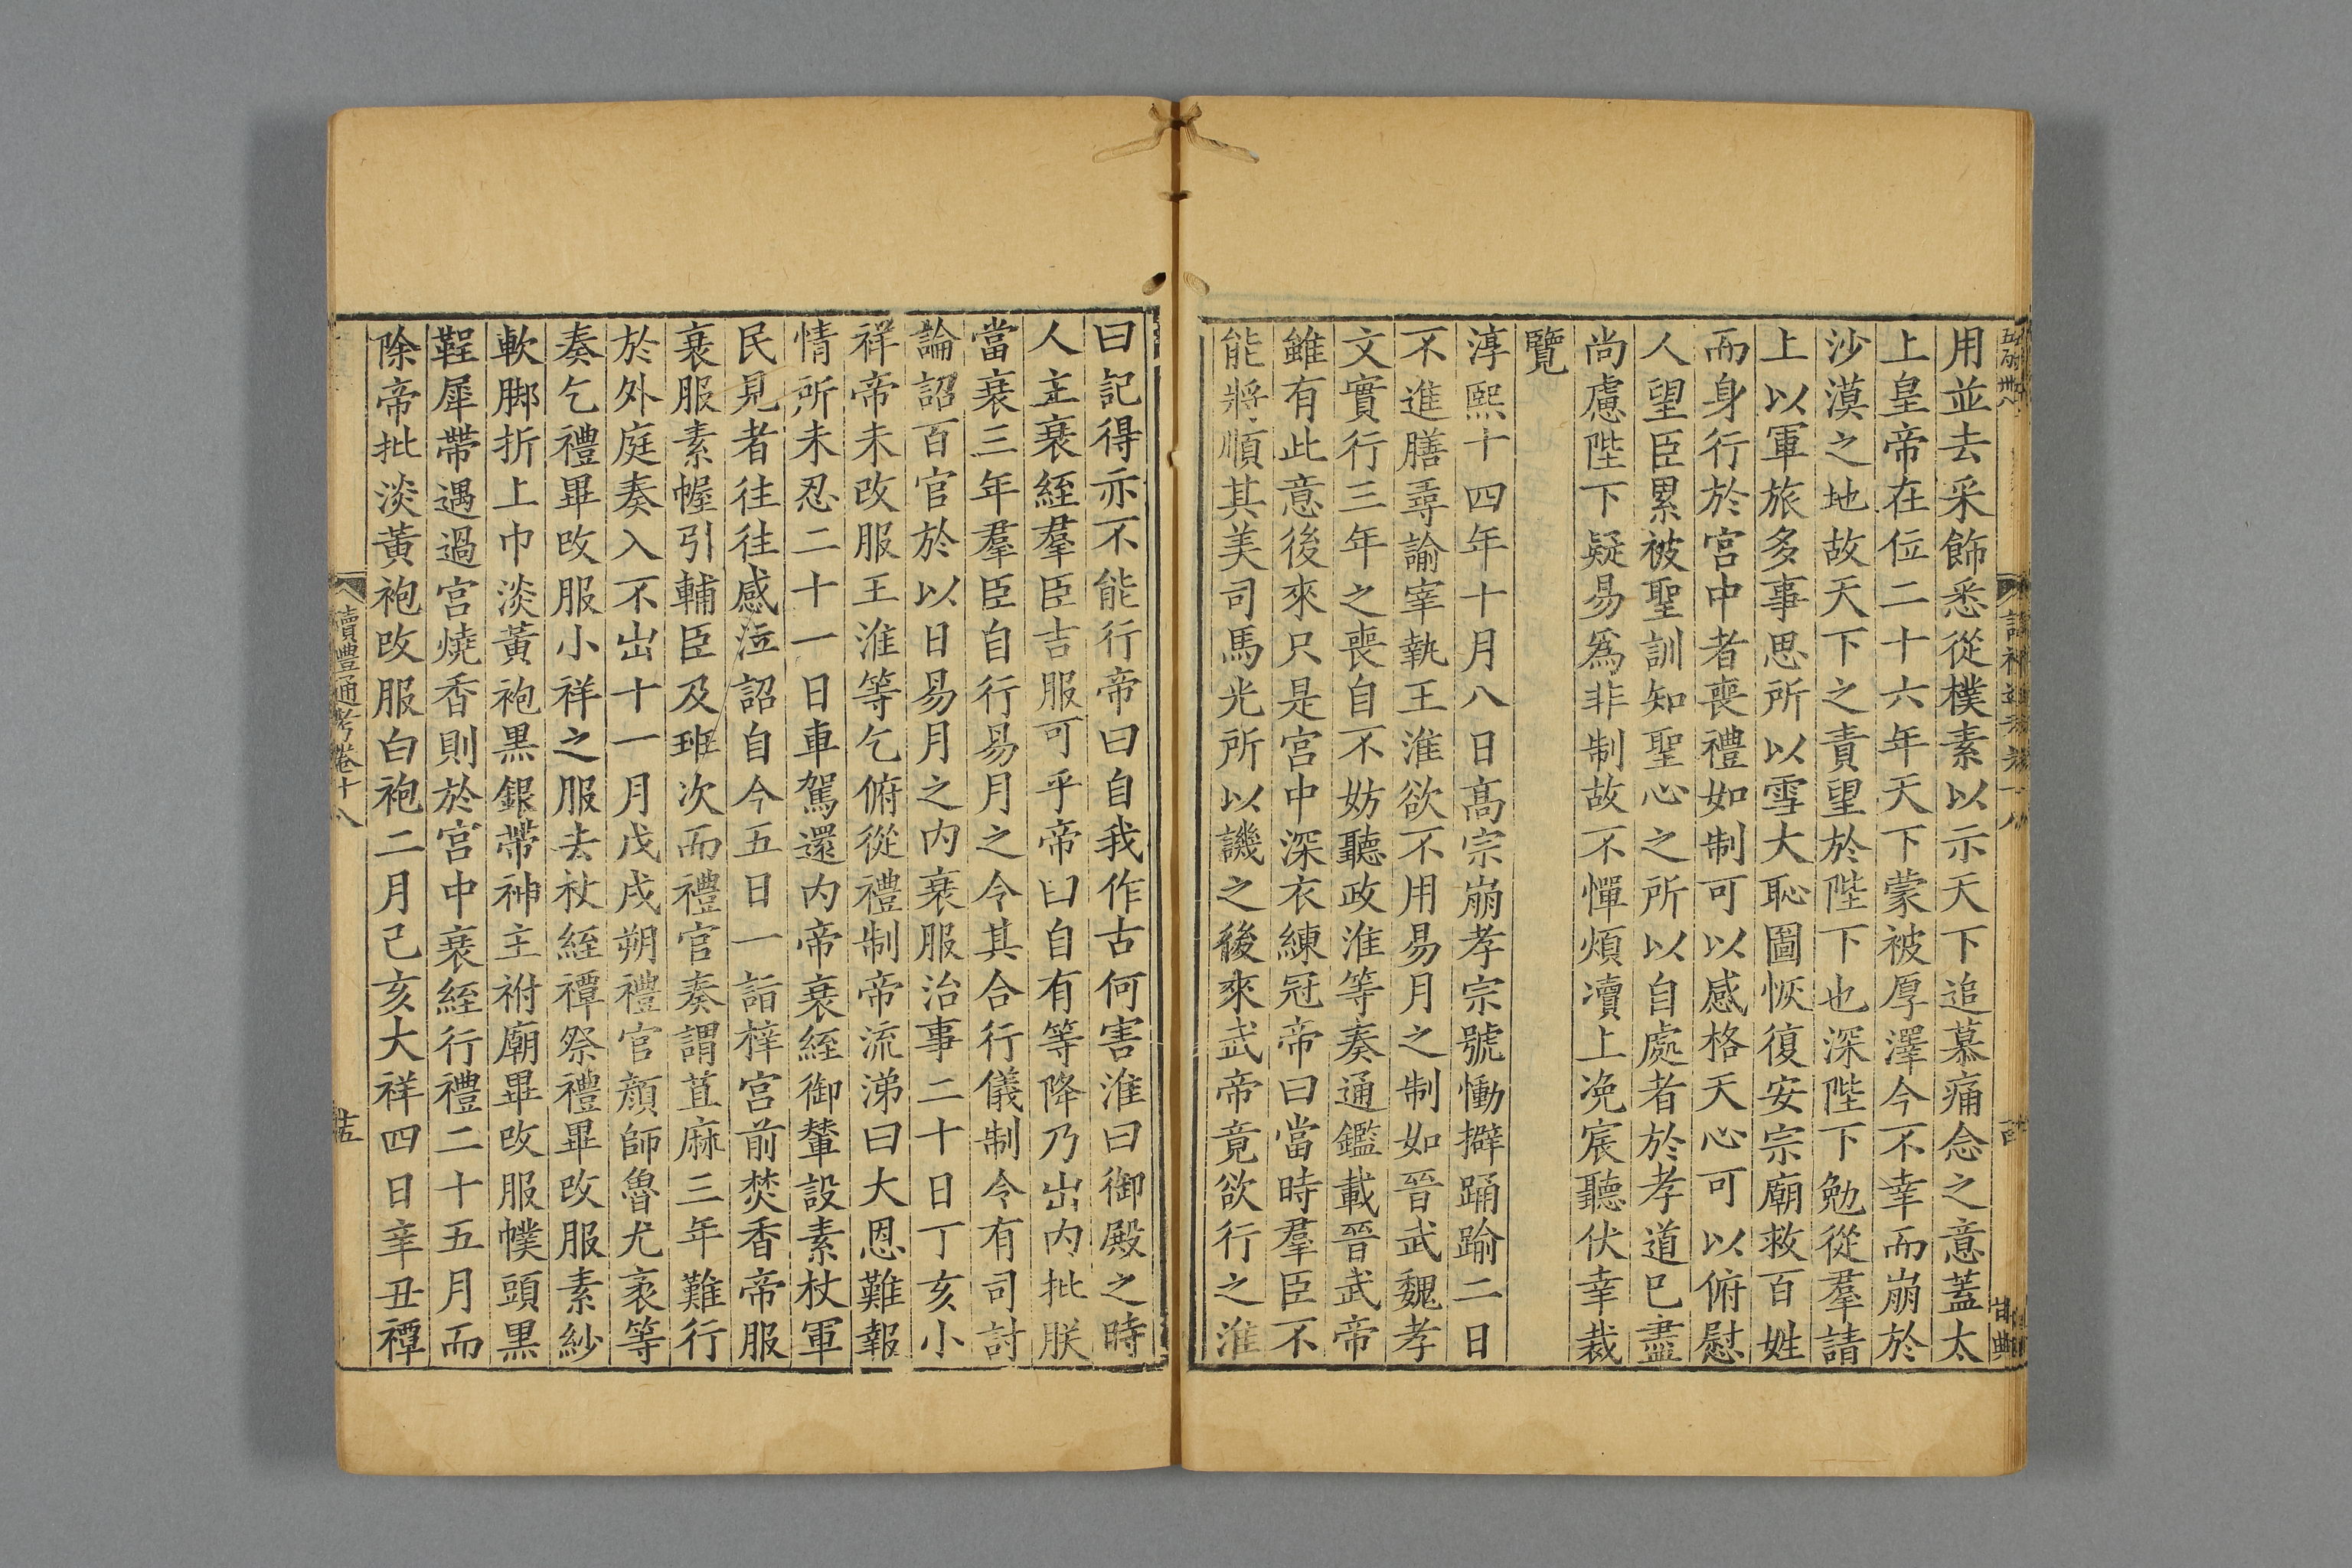 用並去采飾悉從樸素以示天下追慕痛念之意蓋太
上皇帝在位二十六年天下蒙被厚澤今不幸而崩於
沙漠之地故天下之責望於陛下也深陛下勉從羣請
上以軍旅多事思所以雪大恥圖恢復安宗廟救百姓
而身行於宮中者喪禮如制可以感格天心可以俯慰
人望臣累被聖訓知聖心之所以自處者於孝道巳盡
尚慮陛下疑易爲非制故不憚煩凟上冼宸聽伏幸裁
覽
淳熙十四年十月八日高宗崩孝宗號慟擗踊踰二日
不進膳尋諭宰執王淮欲不用易月之制如晉武魏孝
文實行三年之喪自不妨聽政淮等奏通鑑載晉武帝
雖有此意後來只是宮中深衣練冠帝曰當時羣臣不
能將順其美司馬光所以譏之後來武帝竟欲行之淮
曰記得亦不能行帝曰自我作古何害淮曰御殿之時
人主衰絰羣臣吉服可乎帝曰自有等降乃出內批朕
當衰三年羣臣自行易月之令其合行儀制令有司討
論詔百官於以日易月之內衰服治事二十日丁亥小
祥帝未改服王淮等乞俯從禮制帝流涕曰大恩難報
情所未忍二十一日車駕還內帝衰絰御輦設素杖軍
民見者往往感泣詔自今五日一詣梓宮前焚香帝服
衰服素幄引輔臣及班次而禮官奏謂苴麻三年難行
於外庭奏入不出十一月戊戌朔禮官顔師魯尤袤等
奏乞禮畢改服小祥之服去杖絰禫祭禮畢改服素紗
軟脚折上巾淡黃袍黑銀帶神主祔廟畢改服幞頭黑
鞓犀帶遇過宮燒香則於宮中衰絰行禮二十五月而
除帝批淡黃袍改服白袍二月己亥大祥四日辛丑禫
讀禮通考卷十八